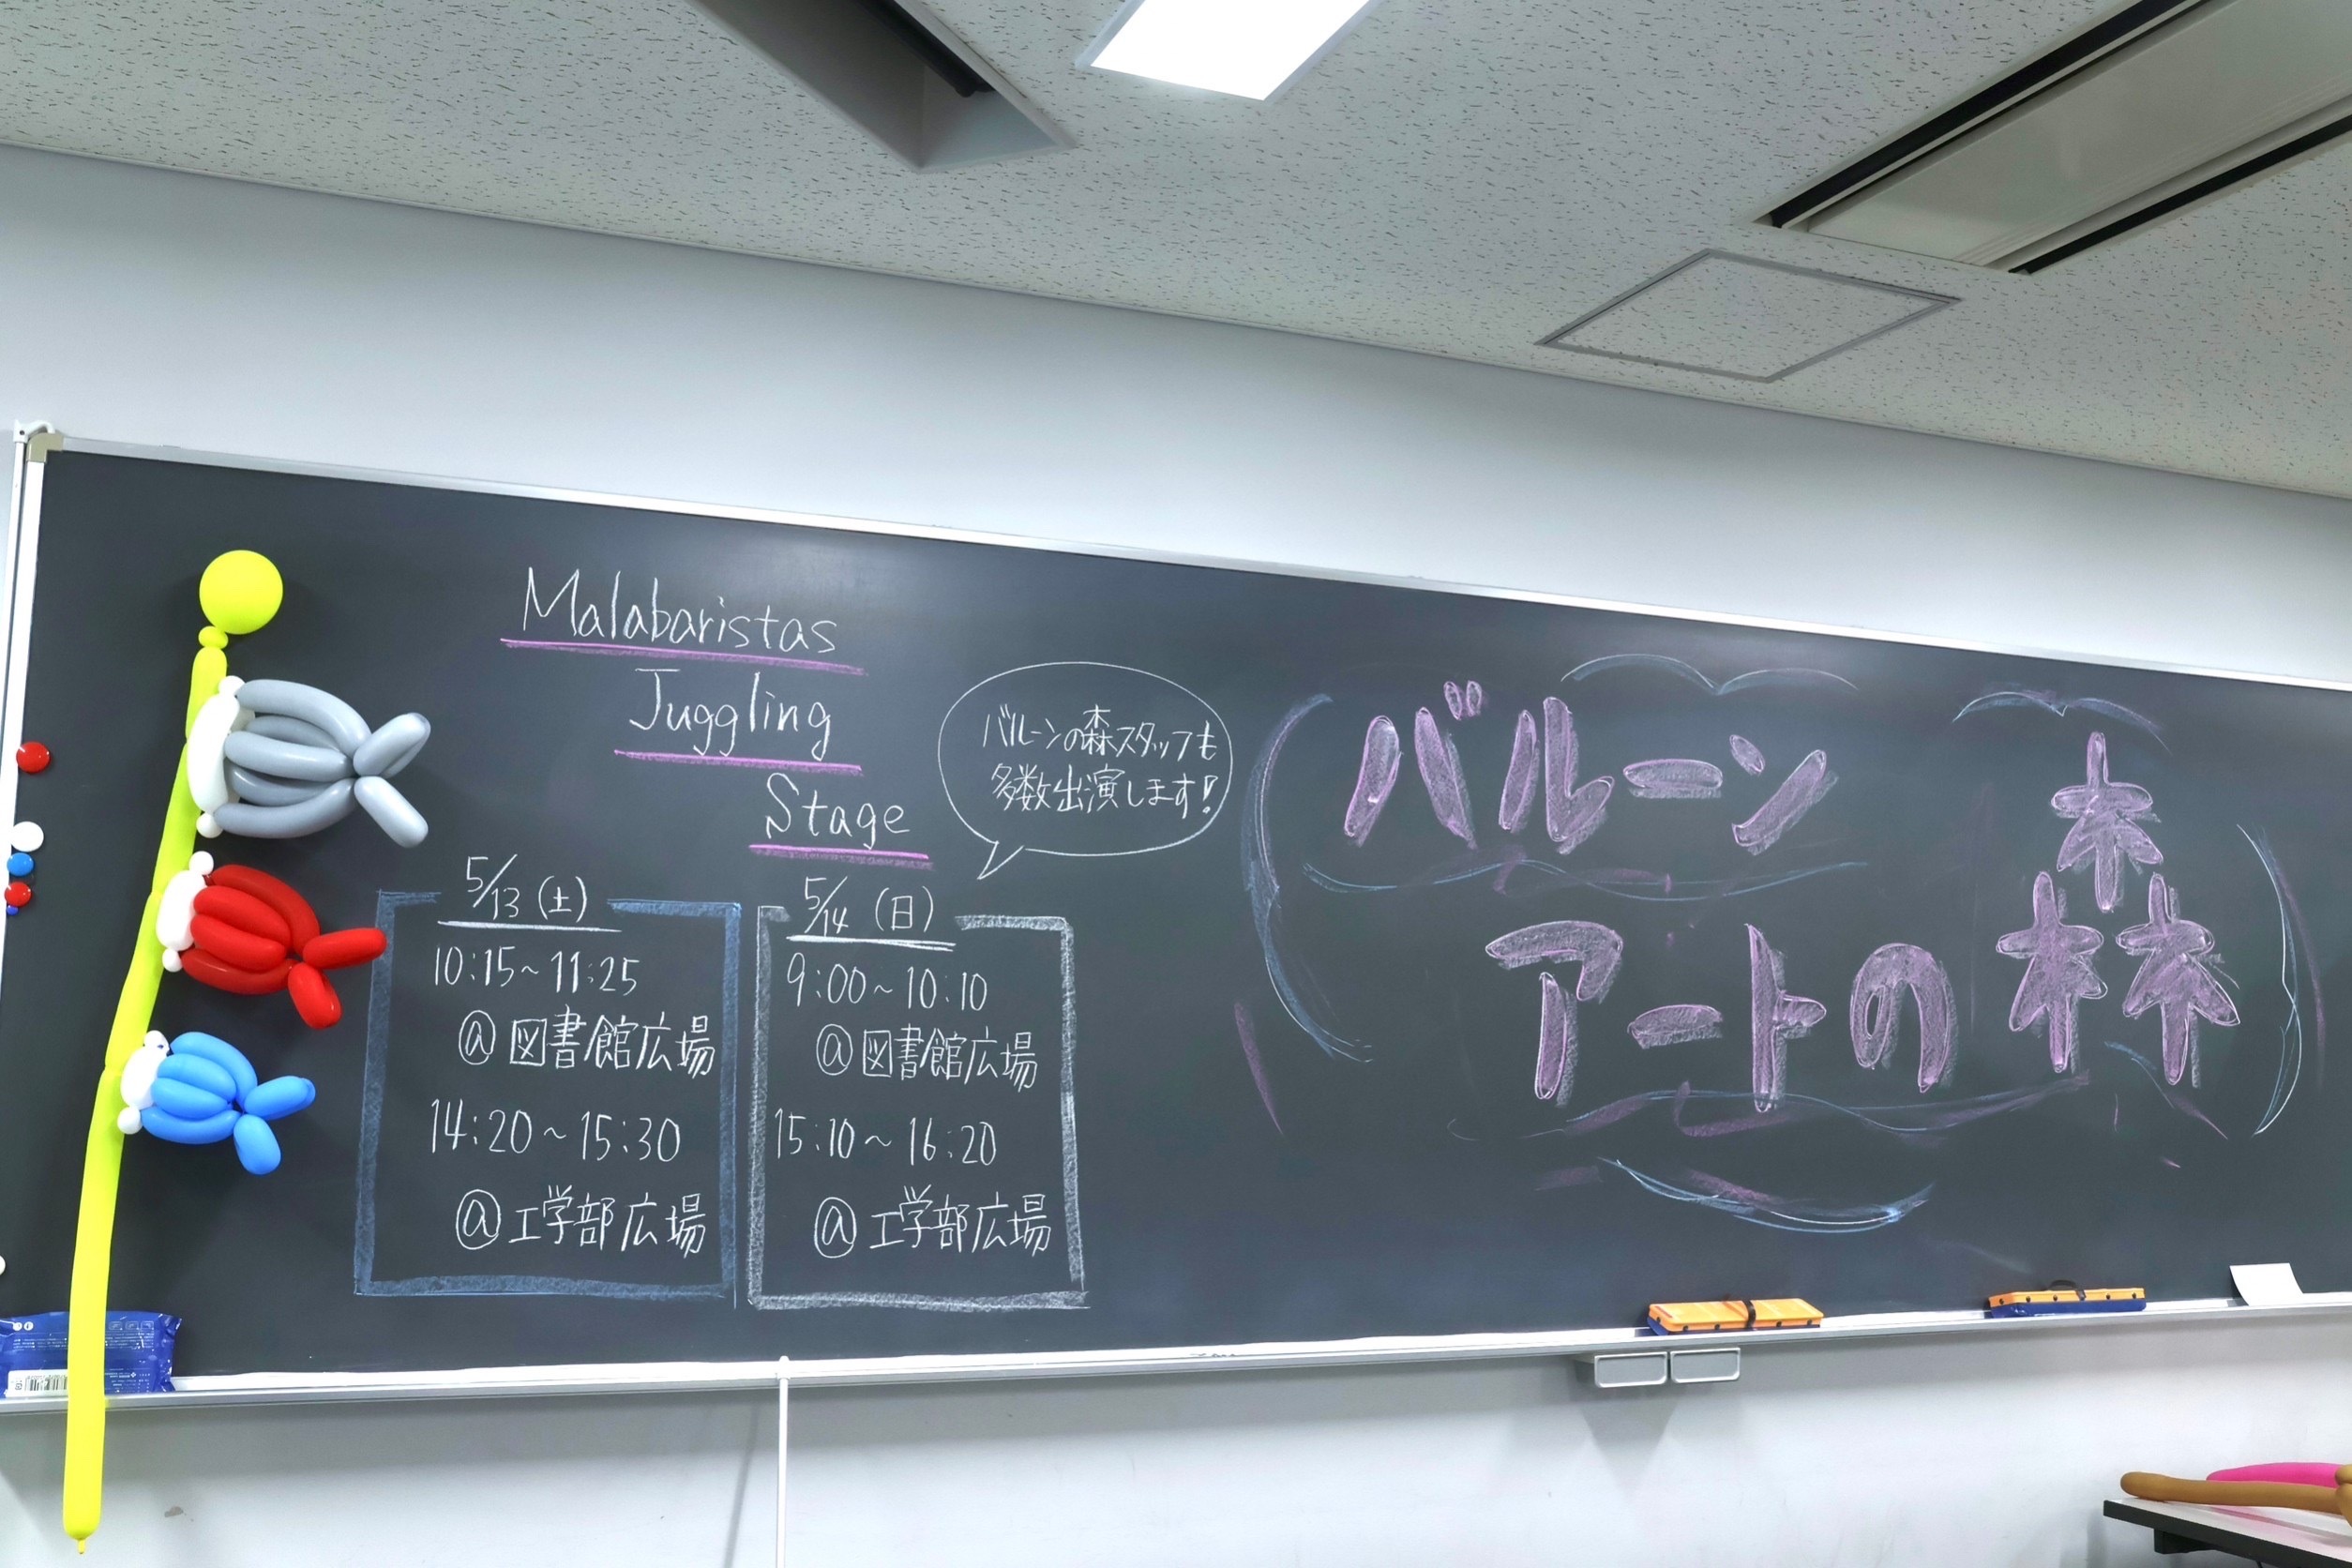 Malabaristas
Juggling
Stage
バルーンの森スタッフも
多数出演します!
5/13 (土)
10:15~11:25
@図書館広場
14:20~15:30
@工学部広場
5/14 (日)
9:00~10:10
@図書館広場
15:10~16:20
@工学部広場
バルーン
アートの森